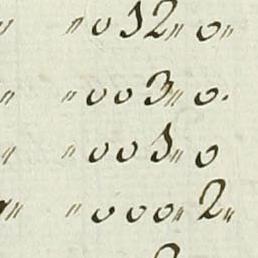 " "032" 0"
" "003" 0.
" "003" 0
" "000" 2"